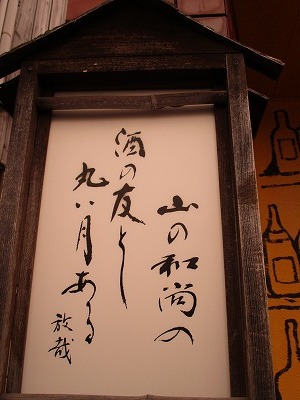 山の和尚の
酒の友とし
丸い月ある
放哉